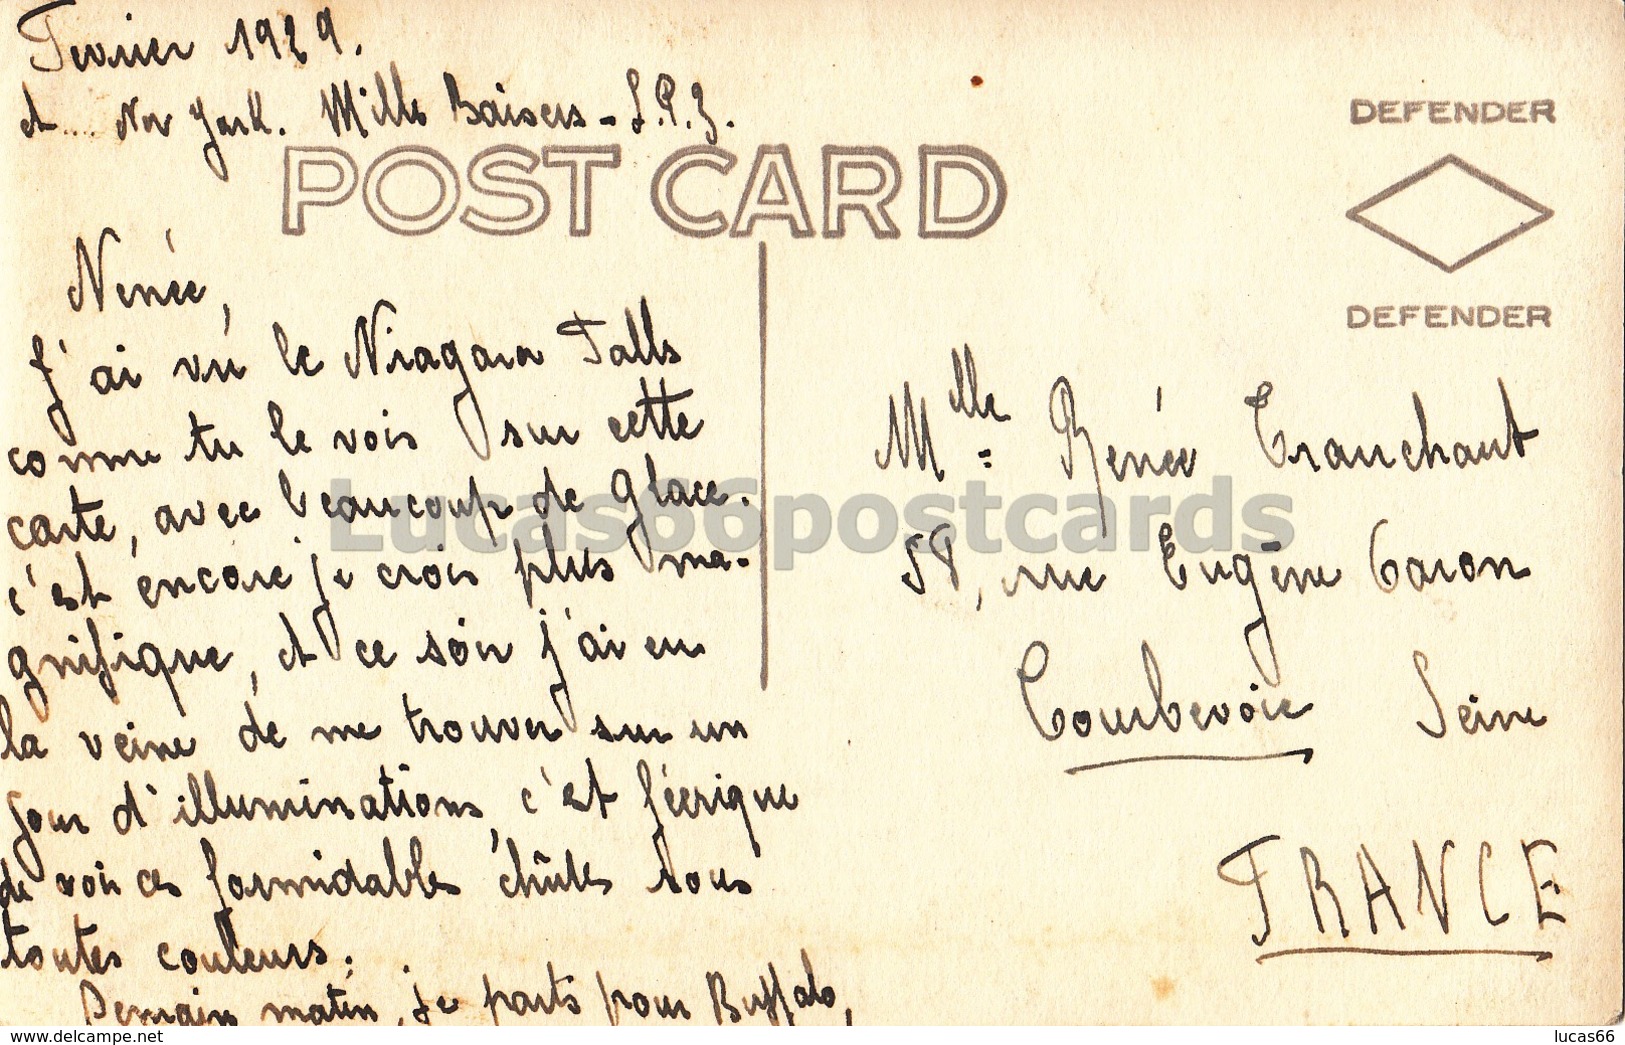 Fevrier 1929.
et ... New York. Mille Baisers -
POST CARD
DEFENDER
DEFENDER
Nenée,
J'ai vu le Niagara Falls
comme tu le vois sur cette
carte, avec beaucoup de glace.
c'est encore je crois plus ma-
gnifique, et ce soir j'ai eu
la veine de me trouver sur un
jour d'illuminations, c'est féerique
de voir ces formidables chûtes sous
toutes couleurs.
Demain matin, je parts pour Buffalo,
Mlle Renée Tranchant
58, rue Eugène Caron
Courbevoie Seine
FRANCE
Lucas66postcards
delcampe.net
lucas66